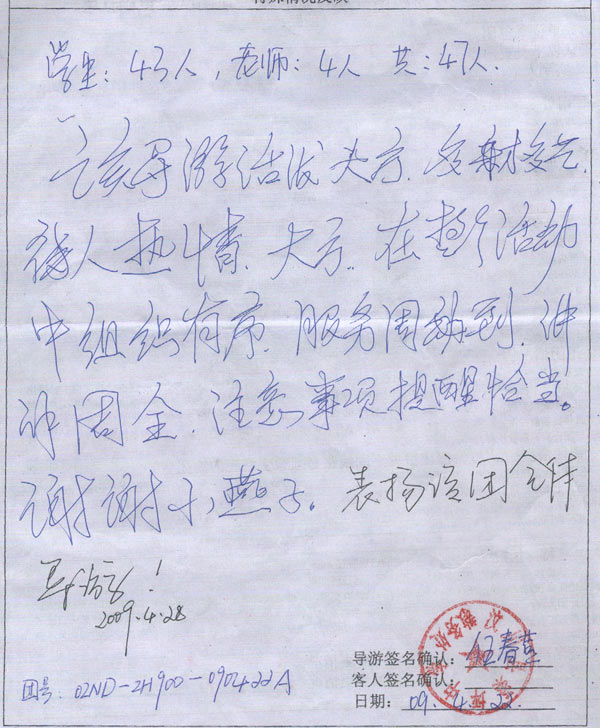 学生: 43人, 老师: 4人 共: 47人.
该导游活泼大方. 多才多艺.
待人热情. 大方. 在整个活动
中组织有序. 服务周到. 讲
解周全. 注意事项提醒恰当。
谢谢小燕子. 表扬该团全体
导游!
2009.4.28
导游签名确认: 伍春燕
客人签名确认:
日期: 09. 4. 22.
团号: 02ND-2H900-090422A
教务处